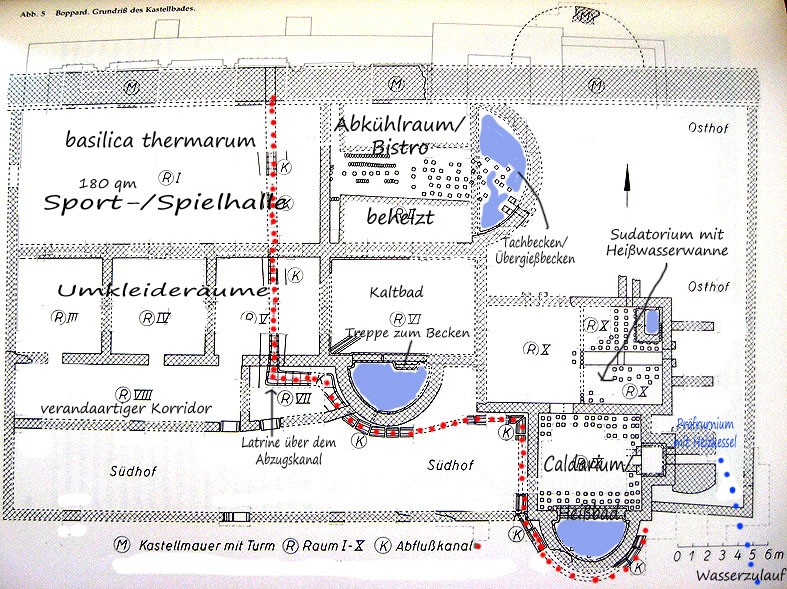 Abb. 5 Boppard. Grundriß des Kastellbades.
M
M
M
M
basilica thermarum
R I
180 qm
Sport-/Spielhalle
K
K
Abkühlraum/
Bistro
beheizt
Osthof
Tachbecken/
Übergießbecken
Sudatorium mit
Heißwasserwanne
Osthof
Umkleideräume
R III
R IV
R V
K
Kaltbad
R VI
Treppe zum Becken
R X
R X
R X
R VIII
verandaartiger Korridor
R VII
K
Latrine über dem
Abzugskanal
Südhof
Südhof
K
Caldarium/
Heißbad
Präfurnium
mit Heizkessel
K
K
M Kastellmauer mit Turm R Raum I-X K Abflußkanal
0 1 2 3 4 5 6m
Wasserzulauf